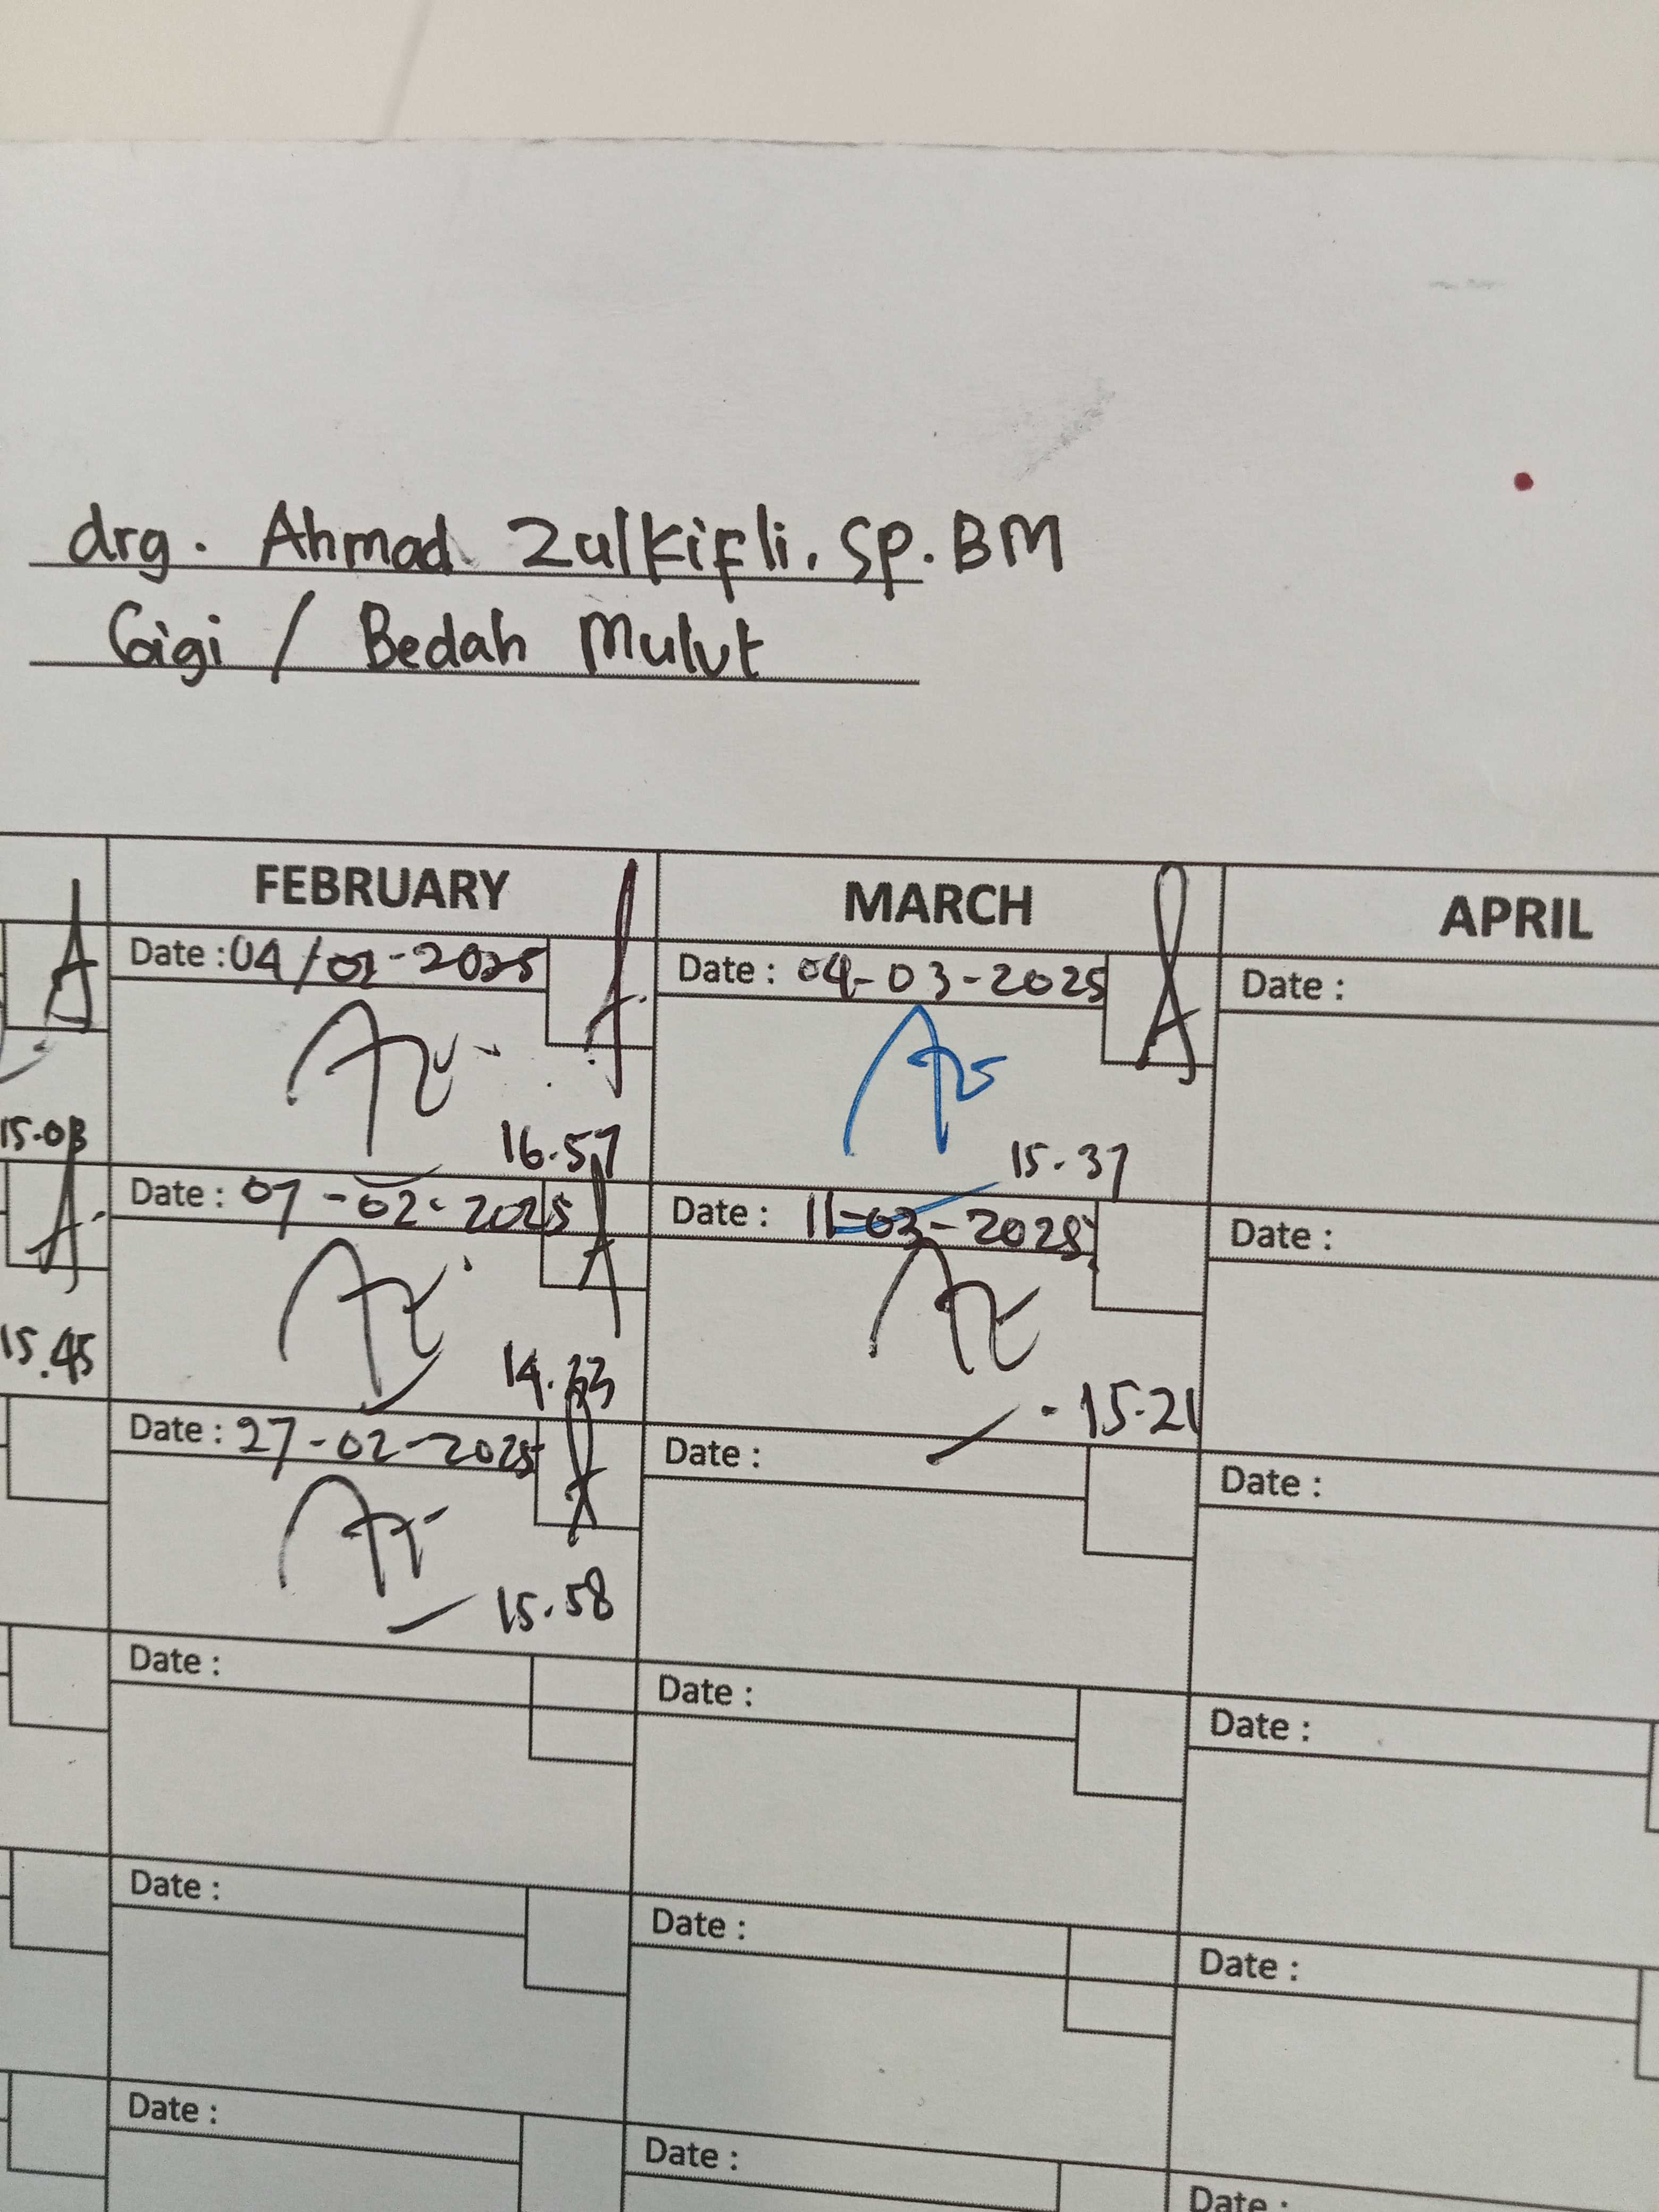 drg. Ahmad Zulkifli. Sp. BM
Gigi / Bedah Mulut
FEBRUARY MARCH APRIL
Date : 04/02-2025 Date : 04-03-2025 Date :
15.03 16.57 15.37
Date : 07-02-2025 Date : 11-03-2025 Date :
15.45 14.33 15.21
Date : 27-02-2025 Date : Date :
15.58
Date : Date : Date :
Date : Date : Date :
Date : Date : Date :